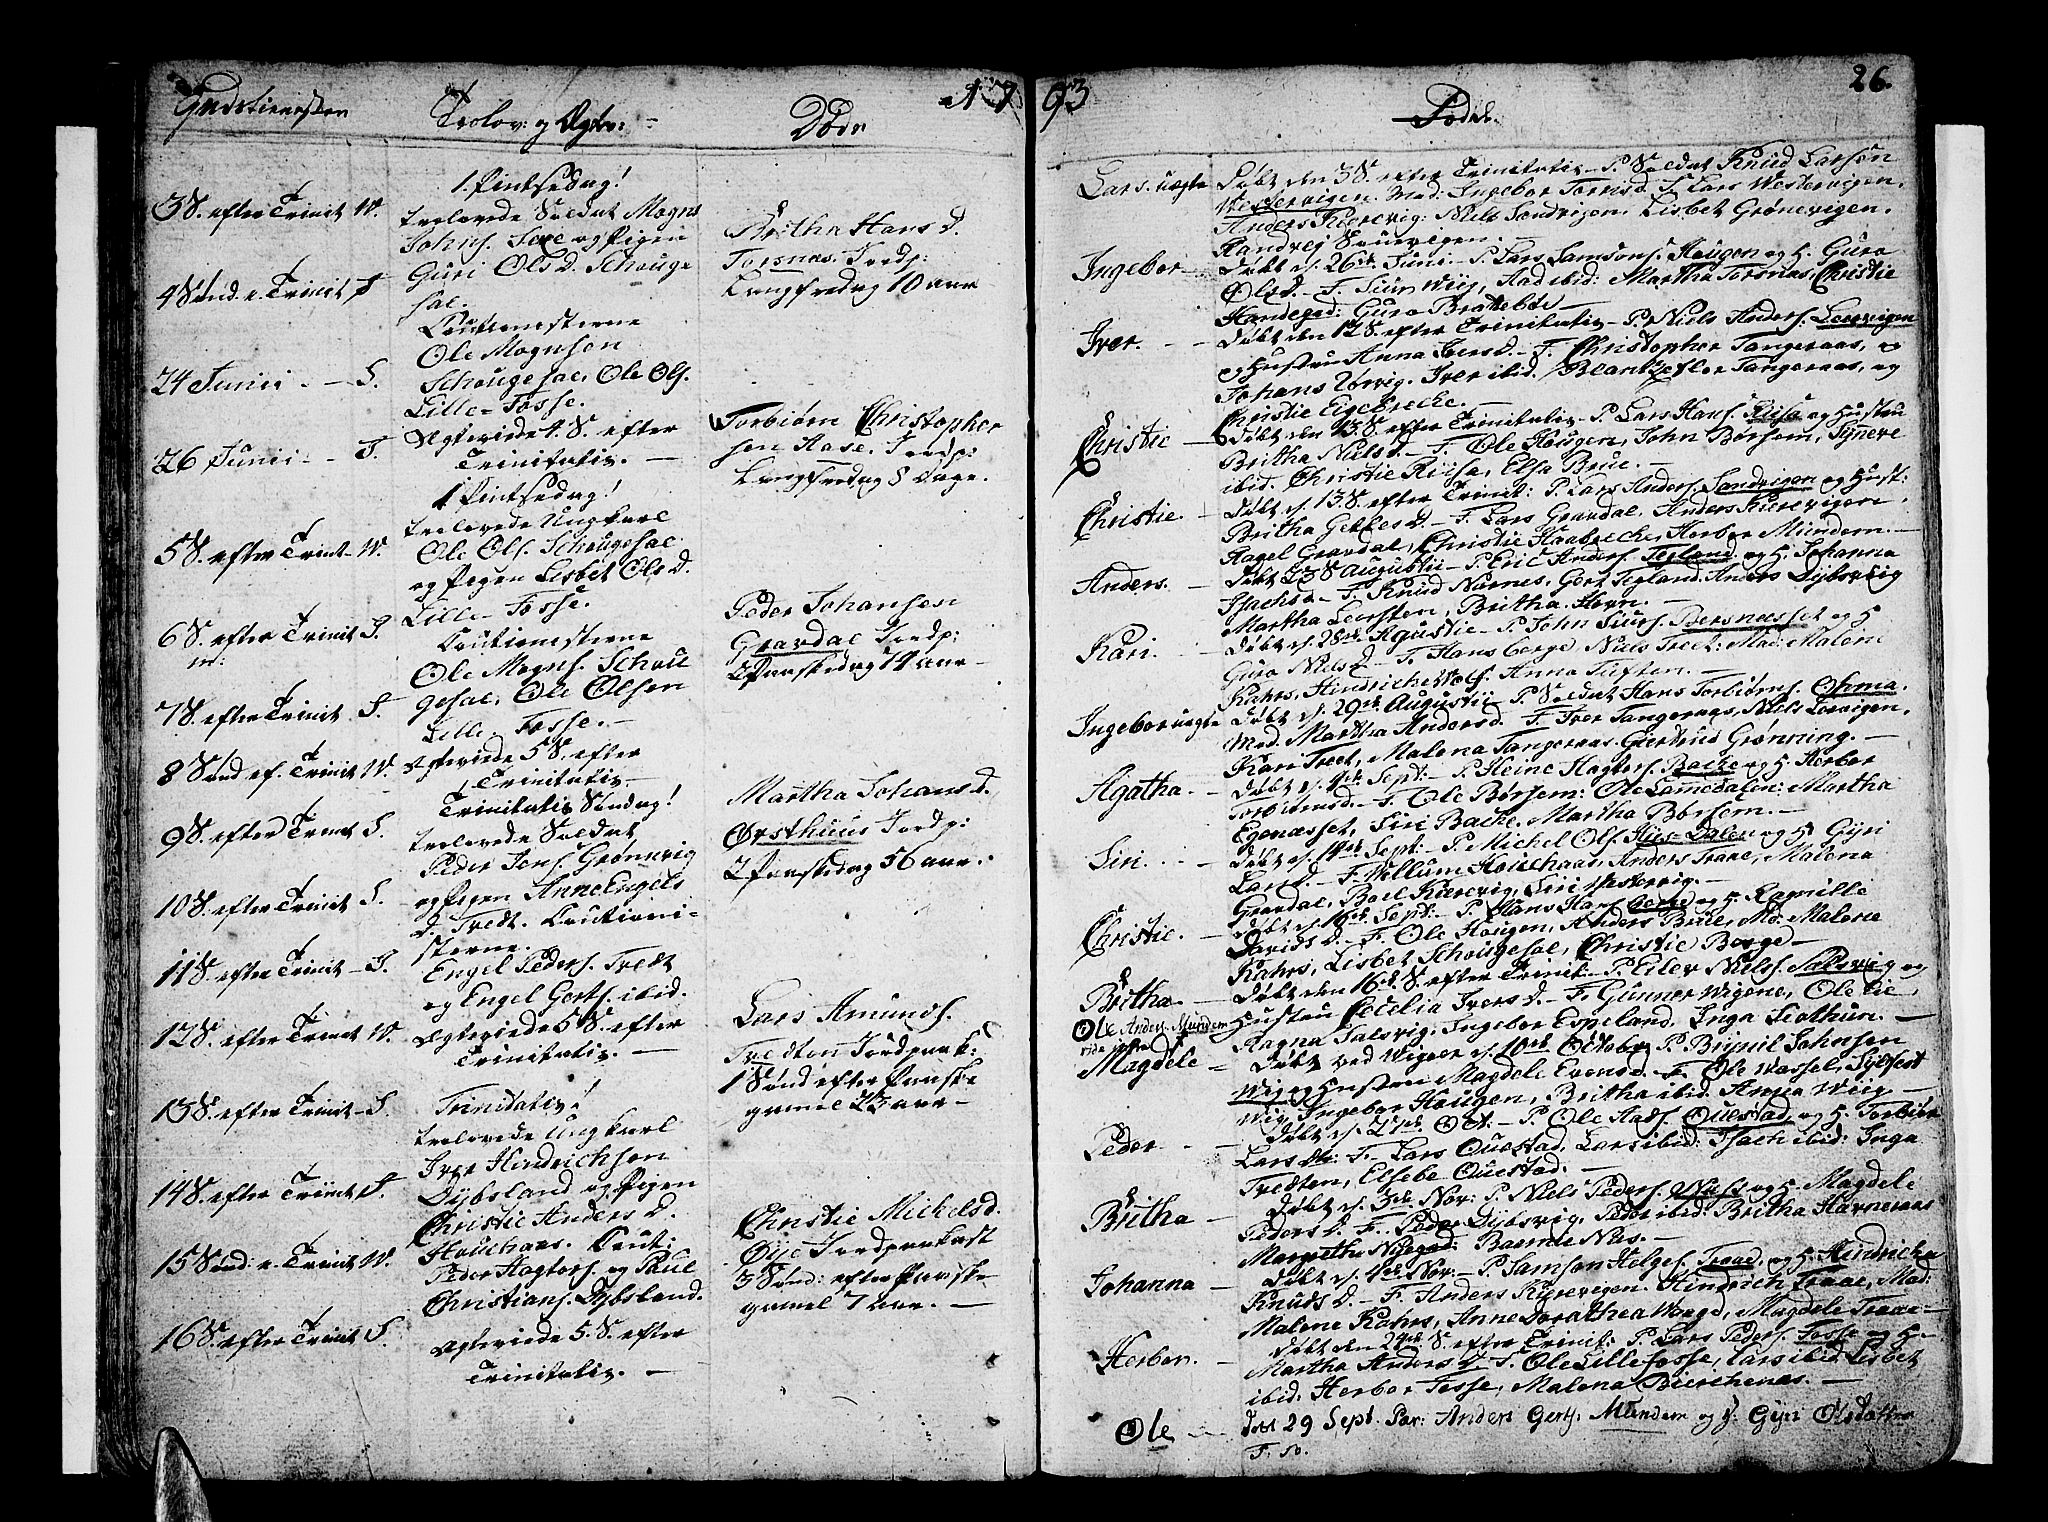 Gudstienesten
Trolov: og Ægtv:
Døde
1793
Fødde.
26.
3 S. efter Trinit W.
4 Sønd. e. Trinit S
24 Junii - S.
26 Junii - S.
5 S. efter Trinit W.
6 S. efter Trinit S.
m:
7 S. efter Trinit. S.
8 Sønd ef. Trinit W.
9 S. efter Trinit S.
10 S. efter Trinit S.
11 S. efter Trinit - S.
12 S. efter Trinit W.
13 S. efter Trinit - S.
14 S. efter Trinit S.
15 Sønd: e. Trinit W.
16 S. efter Trinit S.
1. Pintsedag!
trolovede Soldat Mogns
Johns. Saxe og Pigen
Guri Ols D. Schouge
sal.
Cautionisterne
Ole Mognsen
Schougesal, Ole Ols.
Lille-Fosse.
Ægteviede 4. S. efter
Trinitatis. -
1 Pintsedag!
trolovede Ungkarl
Ole Ols. Schougesal
og Pigen Lisbet Ols D.
Lille-Fosse.
Cautionisterne
Ole Mogns. Schou
gesal, Ole Olsen
Lille-Fosse. -
Ægteviede 5 S. efter
Trinitatis -
Trinitatis Søndag!
trolovede Soldat
Peder Jons. Grønevig
og Pigen Anne Engels
D. Tredt. Cautioni-
sterne.
Engel Peders. Tredt
og Engel Gerts. ibid.
Ægteviede 5 S. efter
Trinitatis. -
Trinitatis!
trolovede Ungkarl
Iver Hindrichsen
Dybsland og Pigen
Christie Anders D.
Houehaas. Caut:
Peder Hagtors. og Paul
Christians. Dybsland.
Ægteviede 5. S. efter
Trinitatis. -
Britha Hans D.
Torsnæs. Jordp:
Langfredag 10 aar
Torbiørn Christopher
sen Aase. Jordp:
Langfredag 8 Dage.
Peder Johansen
Gravdal Jordp:
2 Paaskedag 74 aar -
Martha Johans D.
Ørsthuus Jordp:
2 Paaskedag 56 aar.
Lars Amunds.
Tredten Jordpaak:
1 Sønd efter Paaske
gamel 23 aar -
Christie Michelsd.
Øye Jordpaakast
3 Sønd: efter Paaske
gamel 7 aar. -
Lars. uægte Døbt den 3 S. efter Trinitatis - P. Soldat Knud Larsøn
Westervigen. Mod. Ingebor Tornisd. F. Lars Westervigen.
Anders Kierevig: Niels Sandvigen, Lisbet Grønevigen.
Randvej Sauevigen.
Ingebor - Døbt d. 26de Juni - P. Lars Samsons. Haugen og H. Guro
Ols D. - F. Siur Wiig, Aad ibid: Martha Torsnæs, Christie
Handegod: Guro Brattebøe -
Iver. - Døbt den 12 S. efter Trinitatis - P. Niels Anders. Leervigen
og Hustru Anna Ivers D. - F. Christopher Tangeraas, og
Johans Uørvig. Iver ibid. Blantzeflor Tangeraas, og
Christie Eigebrecke. -
Christie - Døbt den 13 S. efter Trinitatis - P. Lars Hans. Riise og Hustru
Britha Niels D. - F. Ole Hougen, John Børsem, Synneve
ibid. Christie Riise, Elsa Brue. -
Christie. - Døbt d. 13 S. efter Trinit: P. Lars Anders. Sandvigen og Hust:
Britha Gekkles D. - F. Lars Gravdal, Anders Kierevigen.
Ragel Gravdal, Christie Haabrecke, Herbor Mundem. -
Anders. - Døbt 23 S Augustii - P. Eric Anders. Tegland. og H. Johanna
Isachs D - F. Knud Narnes, Gert Tegland. Anders Dybsvig
Martha Leersten, Britha. Hovn. -
Kari. - Døbt d. 28de Agustii - P. John Siurs. Bersnæsset og H
Guro Niels D. - F. Hans Berge, Niels Tredt: Mad: Malene
Rahrs, Hindriche Wols. Anna Tuften. -
Ingebor uægte Døbt d. 29de Augustii - P. Soldat Hans Torbiørns. Ohma.
Mod. Martha Andersd. F. Iver Tangeraas, Niels Leervigen,
Kari Tredt, Malena Tangeraas. Giertrud Grønning. -
Agatha. - Døbt d. 1de Sept: - P. Heine Hagtors. Backe og H. Herbor
Torbiørnsd. - F. Ole Børsem: Ole Samedalen: Martha
Egenæsset, Siri Backe. Martha Børsem. -
Siri. - Døbt d. 14de Sept: - P. Michel Ols. Huse-Dalen og H Gyri
Lars D. - F. Villum Houehaas, Anders Traae, Malena
Gravdal, Boel Kierevig, Siri Westervig. -
Christie. - Døbt d. 16de Sept: - P. Hans Hans. Berge og H. Ragnille
Davids D. - F. Ole Hougen, Anders Brue, Md: Malene
Rahrs, Lisbet Schougesal, Christie Borge -
Britha - Døbt den 16de S. efter Trinit: - P. Eiler Niels. Salsvig og
Hustru Cecelia Ivers D. - F. Gunner Wigene, Ole Lie,
Ragna Salsvig, Ingebor Espeland, Inga Leothun. -
Ole Anders. Mundem
vide infra
Magdele - Døbt ved Wigøer d. 10de October P. Brynil Johnsen
Wig og Hustru Magdele Evensd. - F. Ole Wassel, Sylfest
Wig, Ingebor Hougen, Britha ibid. Anna Wiig -
Peder - Døbt d. 27de Oct: - P. Ole Aads. Ouestad, og H. Torbiør
Lars D: F. Lars Ouestad. Lars ibid: Isach ibid: Inga
Tredten, Elsebe Ouestad. -
Britha - Døbt d. 3de Nov: P. Niels Peders. Næss og H. Magdele
Peders D. F. Peder Dybsvig, Peder ibid: Britha Havneraas
Margretha Næsgod: Barnil Næs. -
Johanna - Døbt d. 4de Nov: - P. Samson Helges. Traae, og H. Hindricha
Knuds D. - F. Anders Kyrevigen. Hindrich Traae, Mad:
Malene Rahrs, Anne Dorathea Waage, Magdele Traae -
Herbor. - Døbt den 24de S. efter Trinit: P. Lars Peders. Fosse og H.
Martha Anders D. F. Ole Lille Fosse, Lars ibid Lisbet
ibid. Herbor Fosse, Malena Bierchenæs. -
Ole - Døbt 29 Sept. Par: Anders Gerts. Mundem og H. Gyri Olsdatter
F. so.